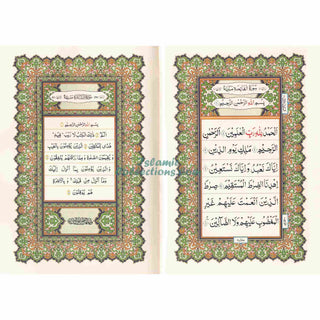 سُوْرَةُ الْفَاتِحَةِ مَكِّيَّةٌ
بِسْمِ اللهِ الرَّحْمٰنِ الرَّحِيْمِ
اَلْحَمْدُ لِلّٰهِ رَبِّ الْعٰلَمِيْنَ ۙ الرَّحْمٰنِ
الرَّحِيْمِ ۙ مٰلِكِ يَوْمِ الدِّيْنِ ۗ
اِيَّاكَ نَعْبُدُ وَاِيَّاكَ نَسْتَعِيْنُ ۗ
اِهْدِنَا الصِّرَاطَ الْمُسْتَقِيْمَ ۙ صِرَاطَ
الَّذِيْنَ اَنْعَمْتَ عَلَيْهِمْ غَيْرِ
الْمَغْضُوْبِ عَلَيْهِمْ وَلَا الضَّآلِّيْنَ
بِسْمِ اللهِ الرَّحْمٰنِ الرَّحِيْمِ
الٓمّٓ ۚ ذٰلِكَ الْكِتٰبُ لَا رَيْبَ فِيْهِ
هُدًى لِّلْمُتَّقِيْنَ ۙ الَّذِيْنَ يُؤْمِنُوْنَ بِالْغَيْبِ
وَيُقِيْمُوْنَ الصَّلٰوةَ وَمِمَّا رَزَقْنٰهُمْ يُنْفِقُوْنَ ۙ
وَالَّذِيْنَ يُؤْمِنُوْنَ بِمَآ اُنْزِلَ اِلَيْكَ
وَمَآ اُنْزِلَ مِنْ قَبْلِكَ ۚ وَبِالْاٰخِرَةِ
هُمْ يُوْقِنُوْنَ
Islamic